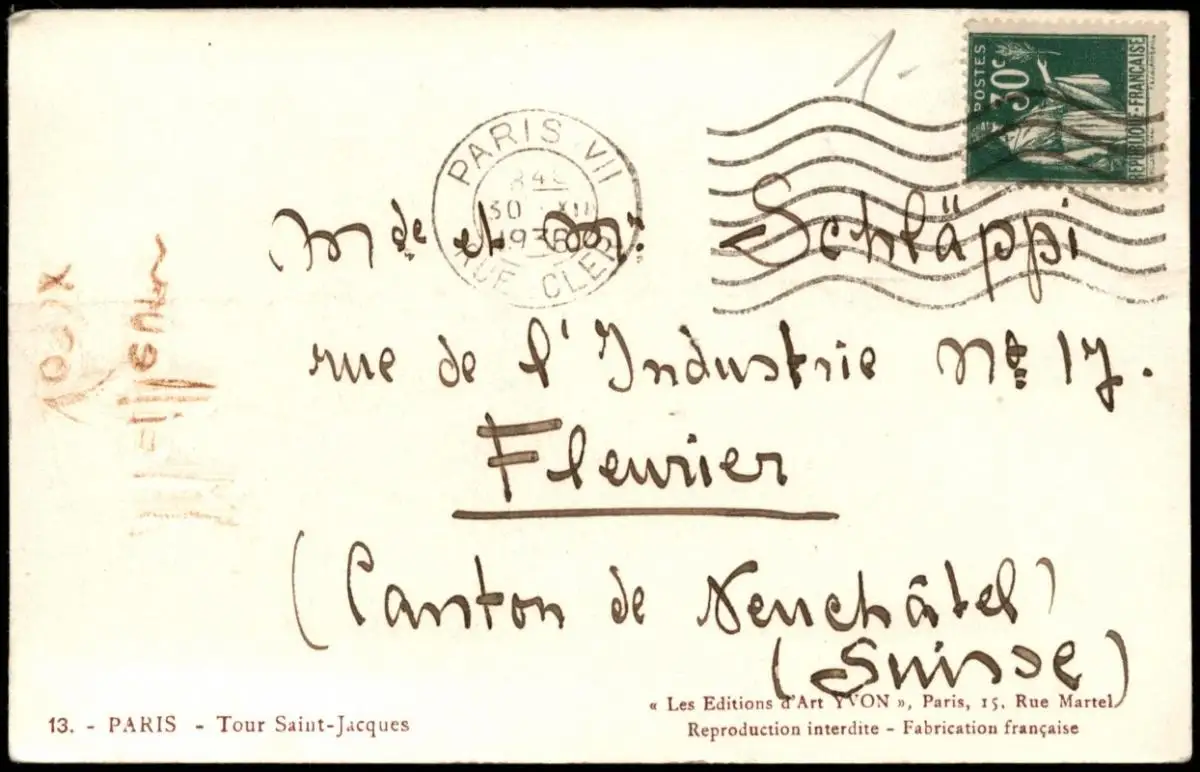 1-
POSTES
30c
REPUBLIQUE-FRANÇAISE
PARIS VII
30 XII
RUE CLER
Mde et Mr: Schläppi
rue de l'Industrie No 17.
Fleurier
(Canton de Neuchâtel)
(Suisse)
13. - PARIS - Tour Saint-Jacques
« Les Editions d'Art YVON », Paris, 15, Rue Martel
Reproduction interdite - Fabrication française